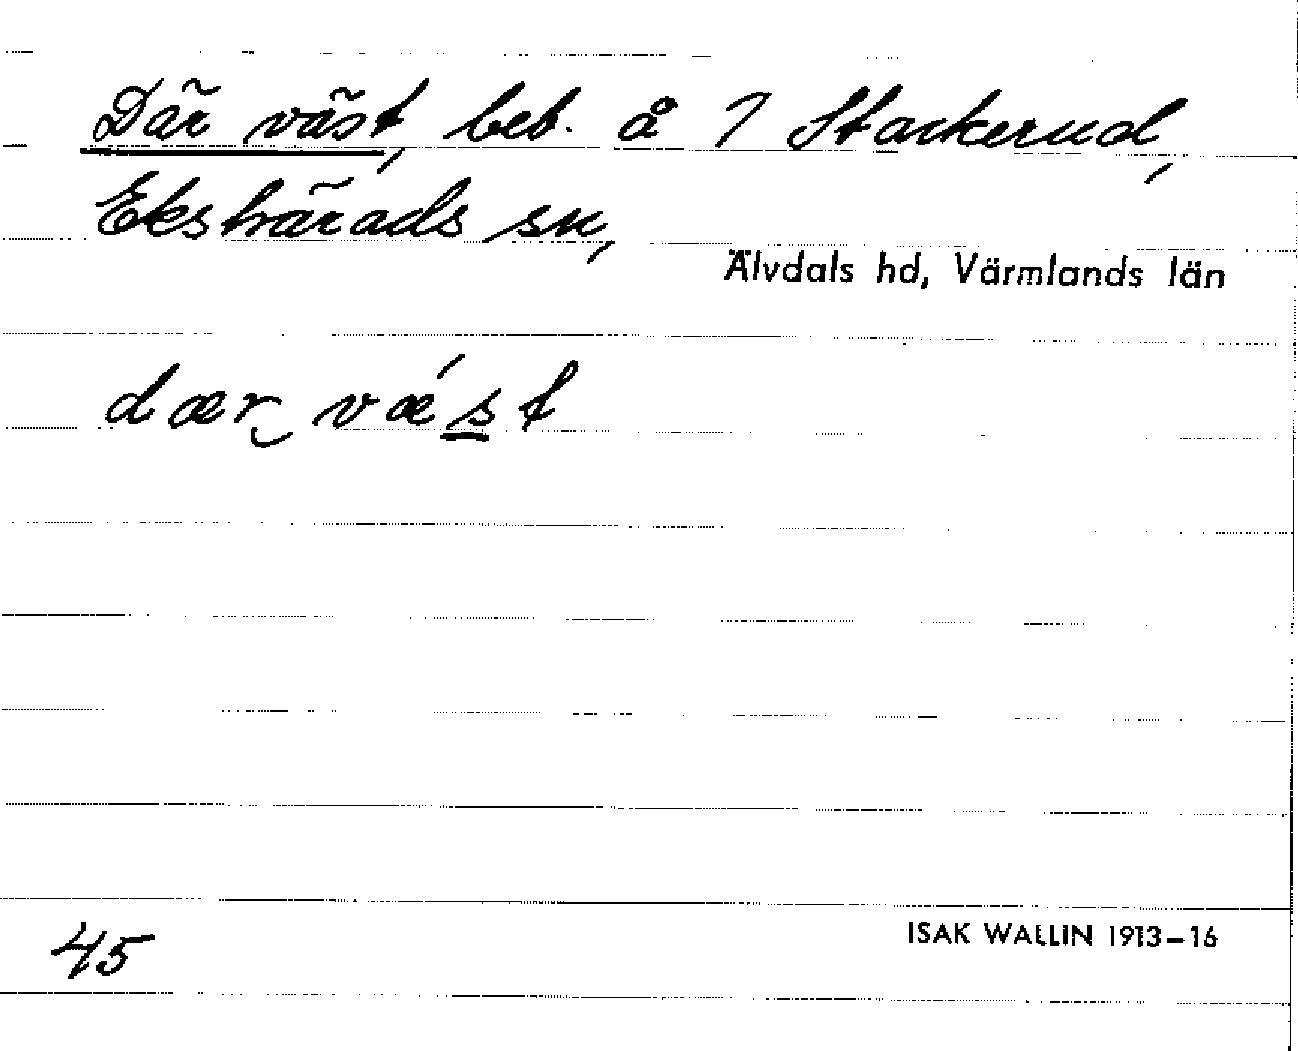 Där väst, beb. å 7 Starkerud,
Ekshärads sn,
Älvdals hd, Värmlands län
dær‿væ´st
45
ISAK WALLIN 1913–16